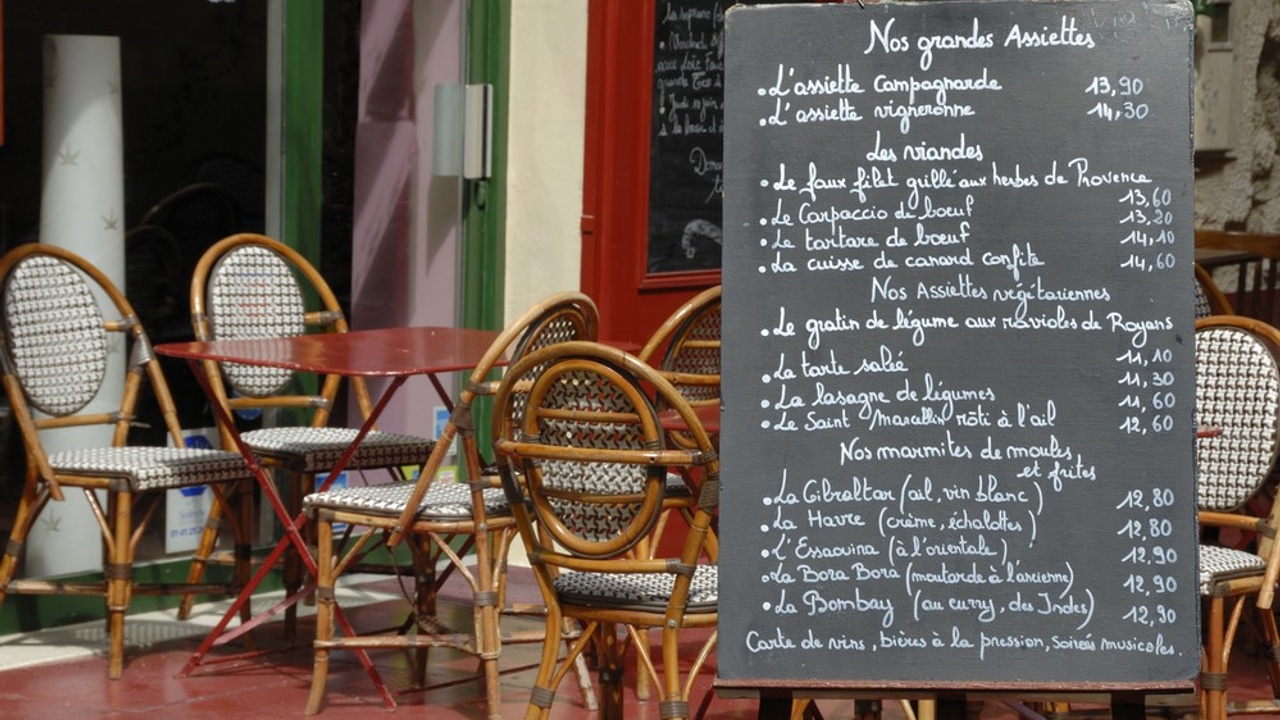 la
Jeudi
Nos grandes Assiettes
. L'assiette Campagnarde 13,90
. L'assiette vigneronne 14,30
Les viandes
. Le faux filet grillé aux herbes de Provence
13,60
. Le Carpaccio de bœuf 13,20
. Le tartare de bœuf 14,10
. La cuisse de canard confite 14,60
Nos Assiettes végétariennes
. Le gratin de légume aux ravioles de Royans
11,10
. La tarte salée 11,30
. La lasagne de légumes 11,60
. Le Saint Marcellin rôti à l'ail 12,60
Nos marmites de moules
et frites
. La Gibraltar (ail, vin blanc) 12,80
. La Havre (crème, échalottes) 12,80
. L'Essaouina (à l'orientale), 12,90
. La Bora Bora (moutarde à l'ancienne) 12,90
. La Bombay (au curry, des Indes) 12,90
Carte de vins, bières à la pression, Soirées musicales.